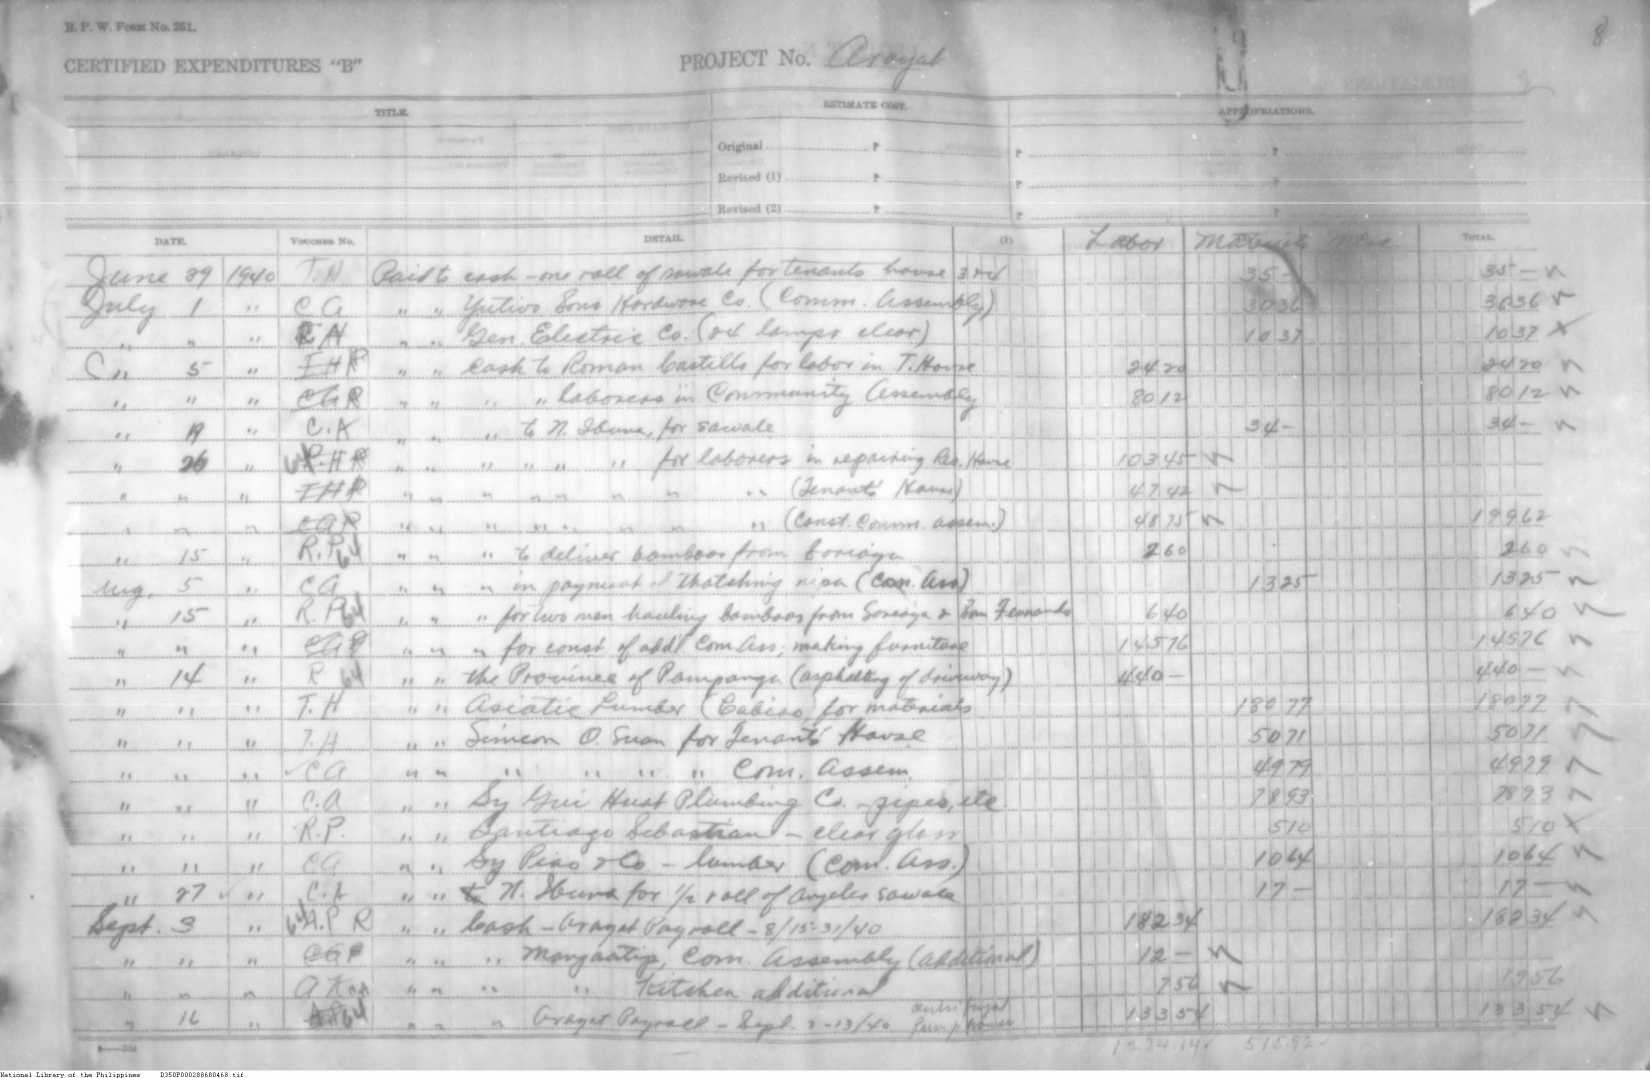 B. P. W. Form No. 261.
8
CERTIFIED EXPENDITURES "B"
PROJECT No. Arayat
TITLE. ESTIMATE COST. APPROPRIATIONS.
Original ₱ ₱ ₱
Revised (1) ₱ ₱ ₱
Revised (2) ₱ ₱ ₱
DATE. VOUCHER No. DETAIL. (1) Labor Materials Misc TOTAL.
June 29 1940 T.H Paid to cash - one roll of sawale for tenants house 35- 35-
July 1 " C A " " Yutivo Sons Hardware Co. (Comm. Assembly) 3036 3036
" " " " " Gen. Electric Co. (24 lamps clear) 1037 1037
" 5 " T H R " " Cash to Roman Castillo for labor in T. House 2420 2420
" " " C A R " " " " laborers in Community Assembly 8012 8012
" 19 " C.A " " " to N. Ibuna, for sawale 34- 34-
" 26 " R.H R " " " " " " for laborers in repairing Res. House 10345
" " " T H R " " " " " " " " (Tenants' House) 4742
" " " C A R " " " " " " " " (Const. Comm. assem.) 4875 19962
" 15 " R.P. 64 " " " to deliver bamboos from 260 260
Aug. 5 " C A " " " in payment of thatching nipa (Com. Ass) 1325 1325
" 15 " R.P. 64 " " " for two men hauling bamboos from & San Fernando 640 640
" " " C A R " " " for const. of add'l Com Ass; making furniture 14576 14576
" 14 " R 64 " " the Province of Pampanga (asphalting of driveway) 440- 440-
" " " T.H " " Asiatic Lumber (Cabiao) for materials 18077 18077
" " " T.H " " Simeon O. Suan for Tenants' House 5071 5071
" " " C A " " " " " " Com. Assem. 4979 4979
" " " C.A " " Sy Gui Huat Plumbing Co. - pipes, etc 7893 7893
" " " R.P. " " Santiago Sebastian - clear glass 510 510
" " " C A " " Sy Piao & Co - lumber (Com. Ass.) 1064 1064
" 27 " C.A " " to N. Ibuna for 1/2 roll of Angeles sawale 17- 17-
Sept. 3 " 64 A.P R " " Cash - Arayat Payroll - 8/15-31/40 18234 18234
" " " C A R " " " Com. Assembly (additional) 12-
" " " " " " " Kitchen additional 756 1956
" 16 " 64 " " " Arayat Payroll - Sept. 2-13/40 13354 13354
1234.14 515.92
National Library of the Philippines D350P000288680468.tif